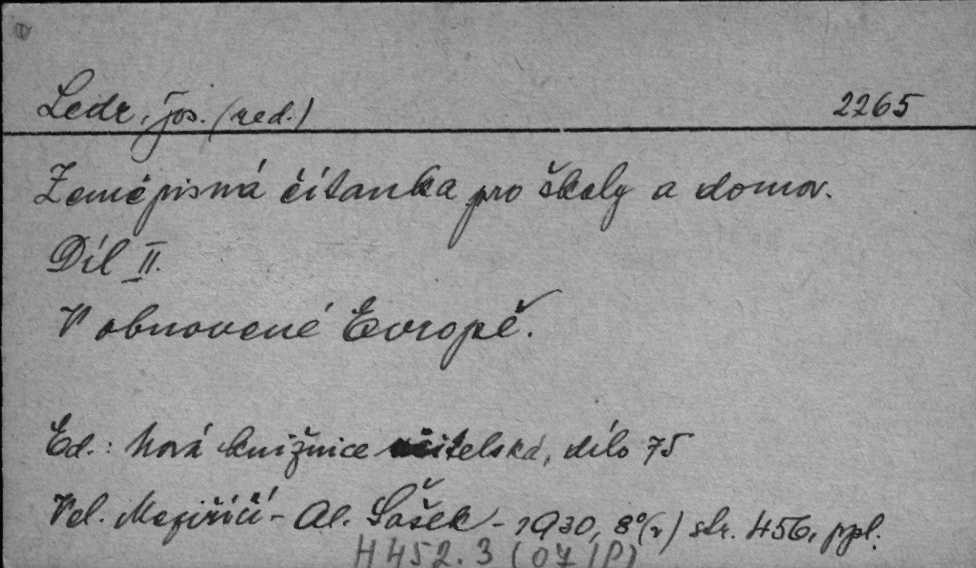 Ledr, Jos. (red.) 2265
Zeměpisná čítanka pro školy a domov.
Díl II.
V obnovené Evropě.
Ed.: Nová knižnice učitelská, dílo 75
Vel. Meziříčí - Al. Šašek - 1930, 8° (v) str. 456, ppl.
H 452.3 (07 IP)